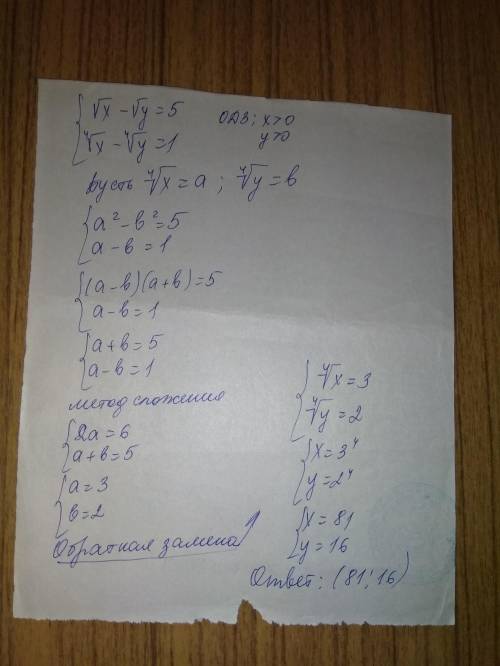 {√x − √y = 5
{⁴√x − ⁴√y = 1
ОДЗ; x>0
y>0
Пусть ⁴√x = a ; ⁴√y = в
{a² − в² = 5
{a − в = 1
{(a − в)(a + в) = 5
{a − в = 1
{a + в = 5
{a − в = 1
метод сложения
{2a = 6
{a + в = 5
{a = 3
{в = 2
Обратная замена
{⁴√x = 3
{⁴√y = 2
{x = 3⁴
{y = 2⁴
{x = 81
{y = 16
Ответ: (81; 16)